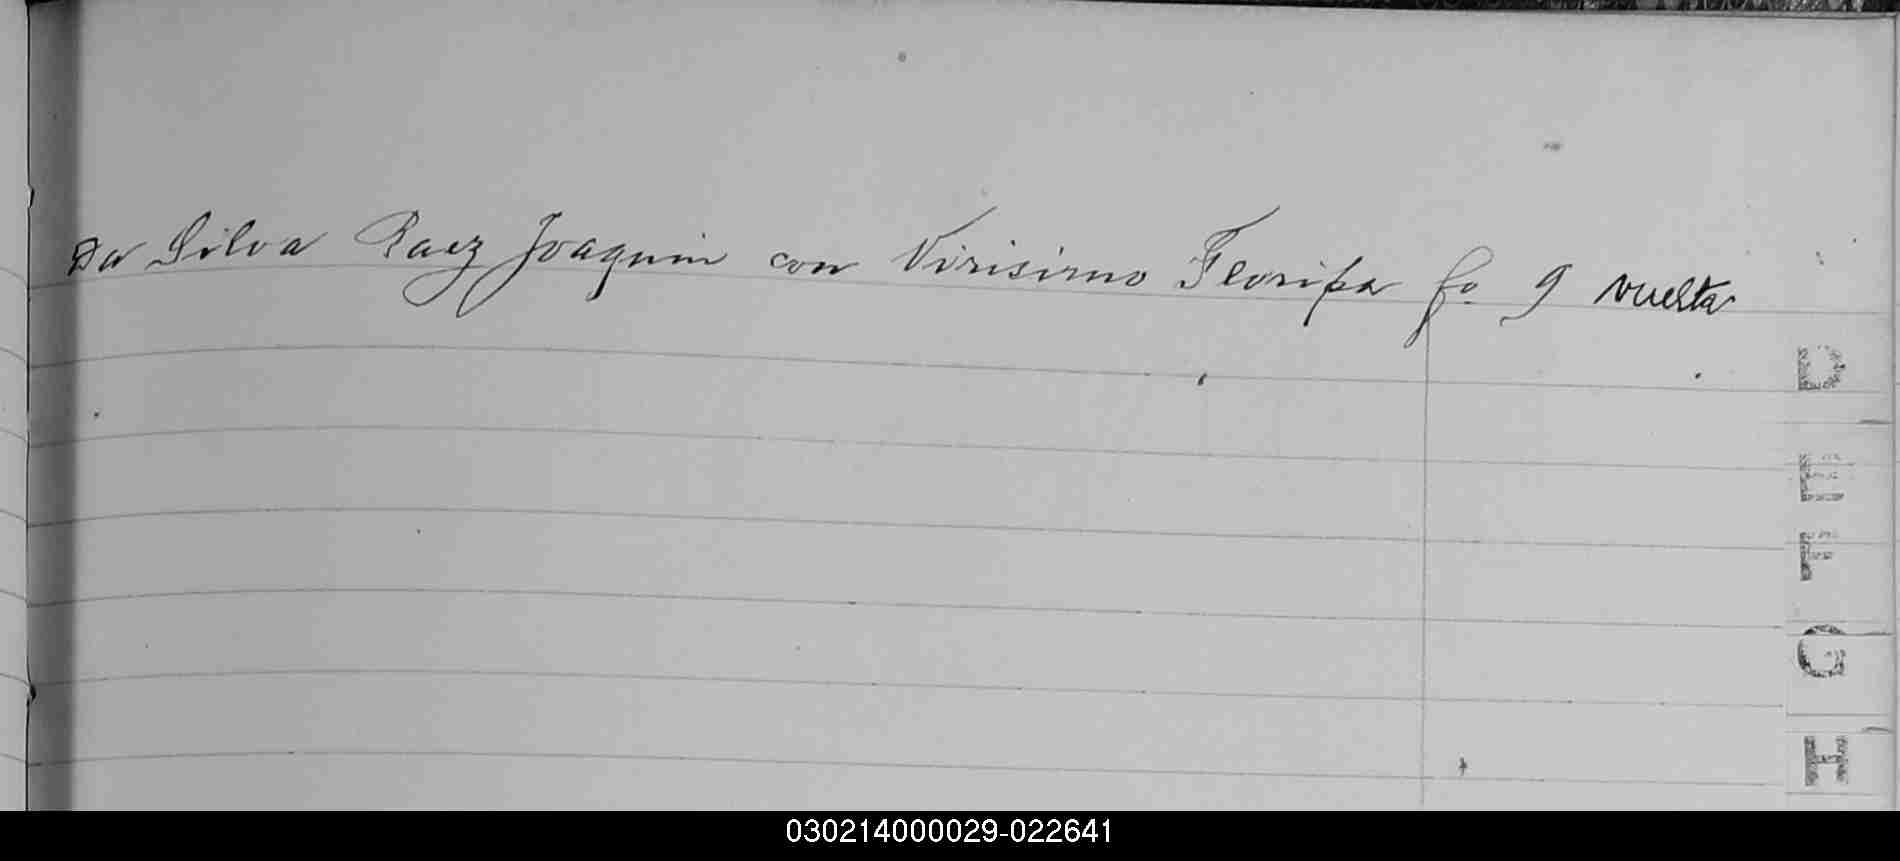 Da Silva Paez Joaquin con Virisimo Floripa fo 9 vuelta
D
E
F
G
H
030214000029-022641